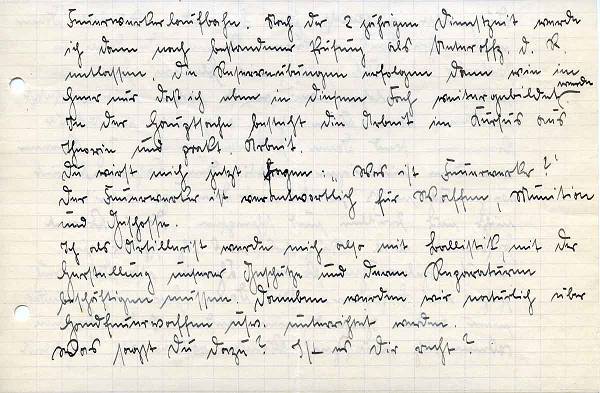 Feuerwerkerlaufbahn. Nach der 2 jährigen Dienstzeit werde
ich dann nach bestandener Prüfung als Unteroffz. d. R.
entlassen. Die Reserveübungen erfolgen dann wie im
Heer nur daß ich eben in diesem Fach weitergebildet werde
In der Hauptsache besteht die Arbeit im Kursus aus
Theorie und prakt. Arbeit.
Du wirst mich jetzt fragen: „Was ist Feuerwerker?"
Der Feuerwerker ist verantwortlich für Waffen, Munition
und Geschosse.
Ich als Artillerist werde mich also mit Ballistik, mit der
Herstellung unserer Geschütze und deren Reparaturen
beschäftigen müssen. Daneben werden wir natürlich über
Handfeuerwaffen usw. unterrichtet werden.
Was sagst Du dazu? Ist es Dir recht?